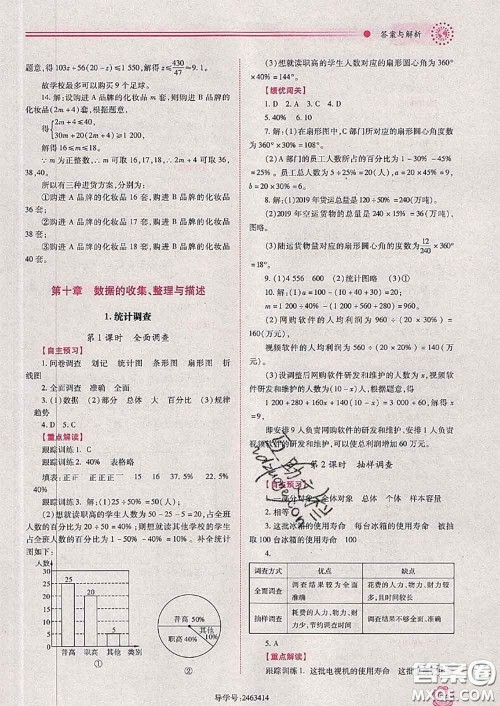 答案与解析
题意,得 103x+56(20-x)≤1 550. 解得 x≤430/47≈9.1.
故学校最多可以购买 9 个足球.
14. 解:设购进 A 品牌的化妆品 m 套,则购进 B 品牌的化妆品(2m+4)套,根据题意,
得{2m+4≤40,
30m+20(2m+4)≥1 200.
解得 16≤m≤18.
∵m 为正整数,∴m=16,17,18. ∴2m+4=36,38,40.
所以有三种进货方案,分别为:
①购进 A 品牌的化妆品 16 套,购进 B 品牌的化妆品 36 套;
②购进 A 品牌的化妆品 17 套,购进 B 品牌的化妆品 38 套;
③购进 A 品牌的化妆品 18 套,购进 B 品牌的化妆品 40 套.
第十章 数据的收集、整理与描述
1.统计调查
第1课时 全面调查
【自主预习】
1. 问卷调查 划记 统计图 条形图 扇形图 折线图
2. 全面调查 准确 全面
3. (1)数据 (2)部分 总体 大 百分比 (3)规律 趋势
4. D 5. C
【重点解读】
跟踪训练1. C
跟踪训练2. 40% 表格略
填表:正 正正 正正一 15 17.5% 22.5% 37.5% 40%
跟踪训练3. 解:(1)25÷50%=50(人).
(2)想就读职高的学生人数为 50-25-5=20(人),占全班人数的百分比为 20÷50=40%;想就读其他学校的学生占全班人数的百分比为 1-50%-40%=10%. 补全统计图如图:
人数
25
20
15
10
5
0
25
20
5
普高 职高 其他 类别
①
普高 50%
职高 40%
其他 10%
②
(3)想就读职高的学生人数对应的扇形圆心角为 360°×40%=144°.
【绩优闯关】
1. D 2. A 3. C 4. D
5. 40% 6. 10
7. 解:(1)在扇形图中,C 部门所对应的扇形圆心角度数为 360°×30%=108°.
(2)A 部门的员工人数所占的百分比为 1-30%-45%=25%. 员工总人数为 5÷25%=20(人). a=20×45%=9,b=20×30%=6.
8. 解:(1)2019 年货运总量是 120÷50%=240(万吨).
(2)2019 年空运货物的总量是 240×15%=36(万吨). 图略.
(3)陆运货物量对应的扇形圆心角的度数为 12/240×360°=18°.
9. (1)4 556 600 (2)统计图略 (3)略
10. 解:(1)a=100-(10+40+30)=20.
m=1 200÷40%-1 200-560-280=960.
(2)网购软件的人均利润为 960÷(20×30%)=160(万元/人),
视频软件的人均利润为 560÷(20×20%)=140(万元/人).
(3)设调整后网购软件研发和维护的人数为 x,视频软件研发和维护的人数为(10-x)人,根据题意,得
1 200+280+160x+140(10-x)=3 000+60.
解得 x=9.
即安排 9 人负责网购软件的研发和维护,安排 1 人负责视频软件的研发和维护,可以使总利润增加 60 万元.
第2课时 抽样调查
【自主预习】
1. 部分对象 全体对象 总体 个体 样本容量
2. 相等
3. 这批冰箱的使用寿命 每台冰箱的使用寿命 被抽取 100 台冰箱的使用寿命
4.
调查方式 优点 缺点
全面调查 调查结果较为全面准确 花费的人力、物力、财力较多,且时间较长
抽样调查 花费的人力、物力、财力较少,节约时间 调查结果不如全面调查准确
5. A
【重点解读】
跟踪训练1. 这批电视机的使用寿命 这批
导学号:2463414
答案圈
MXQE.COM